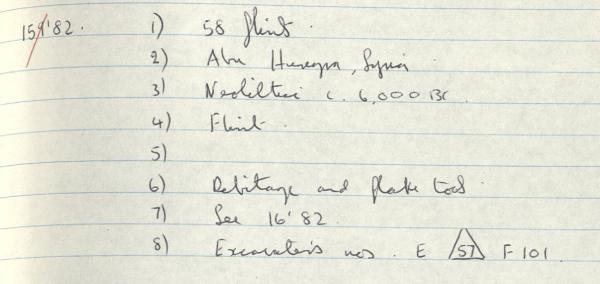 159'82. 1) 58 flint.
2) Abu Hureyra, Syria.
3) Neolithic c. 6,000 BC.
4) Flint.
5)
6) Debitage and flake tools.
7) See 16'82
8) Excavator's nos. E 57 F 101.